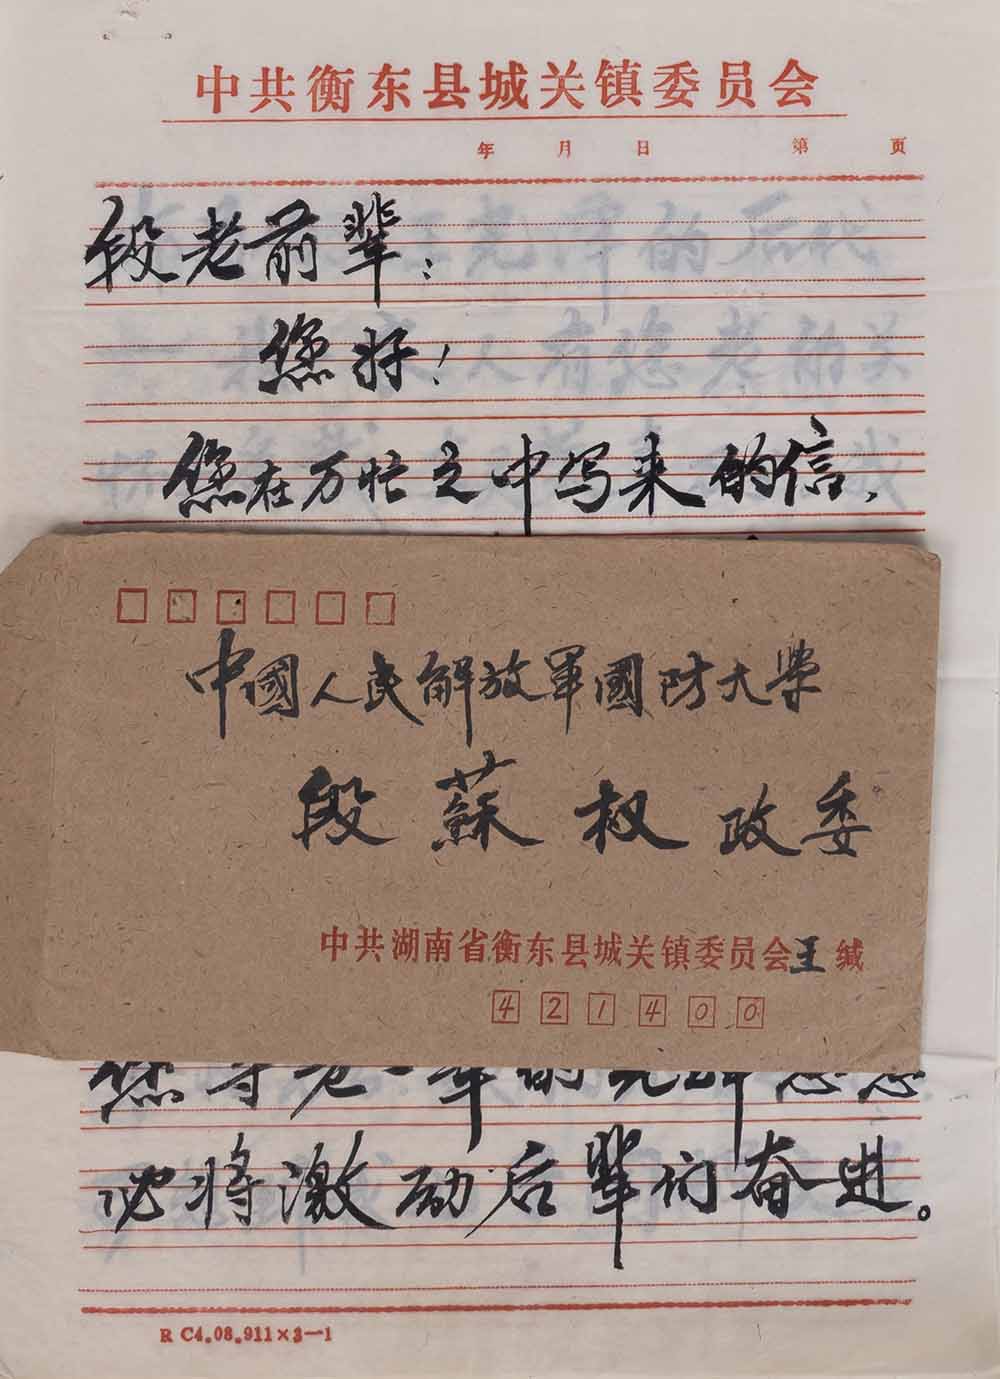 中共衡东县城关镇委员会
年 月 日 第 页
段老前辈:
您好!
您在万忙之中写来的信、
中國人民解放軍國防大學
段蘇权政委
中共湖南省衡东县城关镇委员会王缄
421400
您等老一辈的光辉
必将激励后辈们奋进。
R C4.08.911×3—1